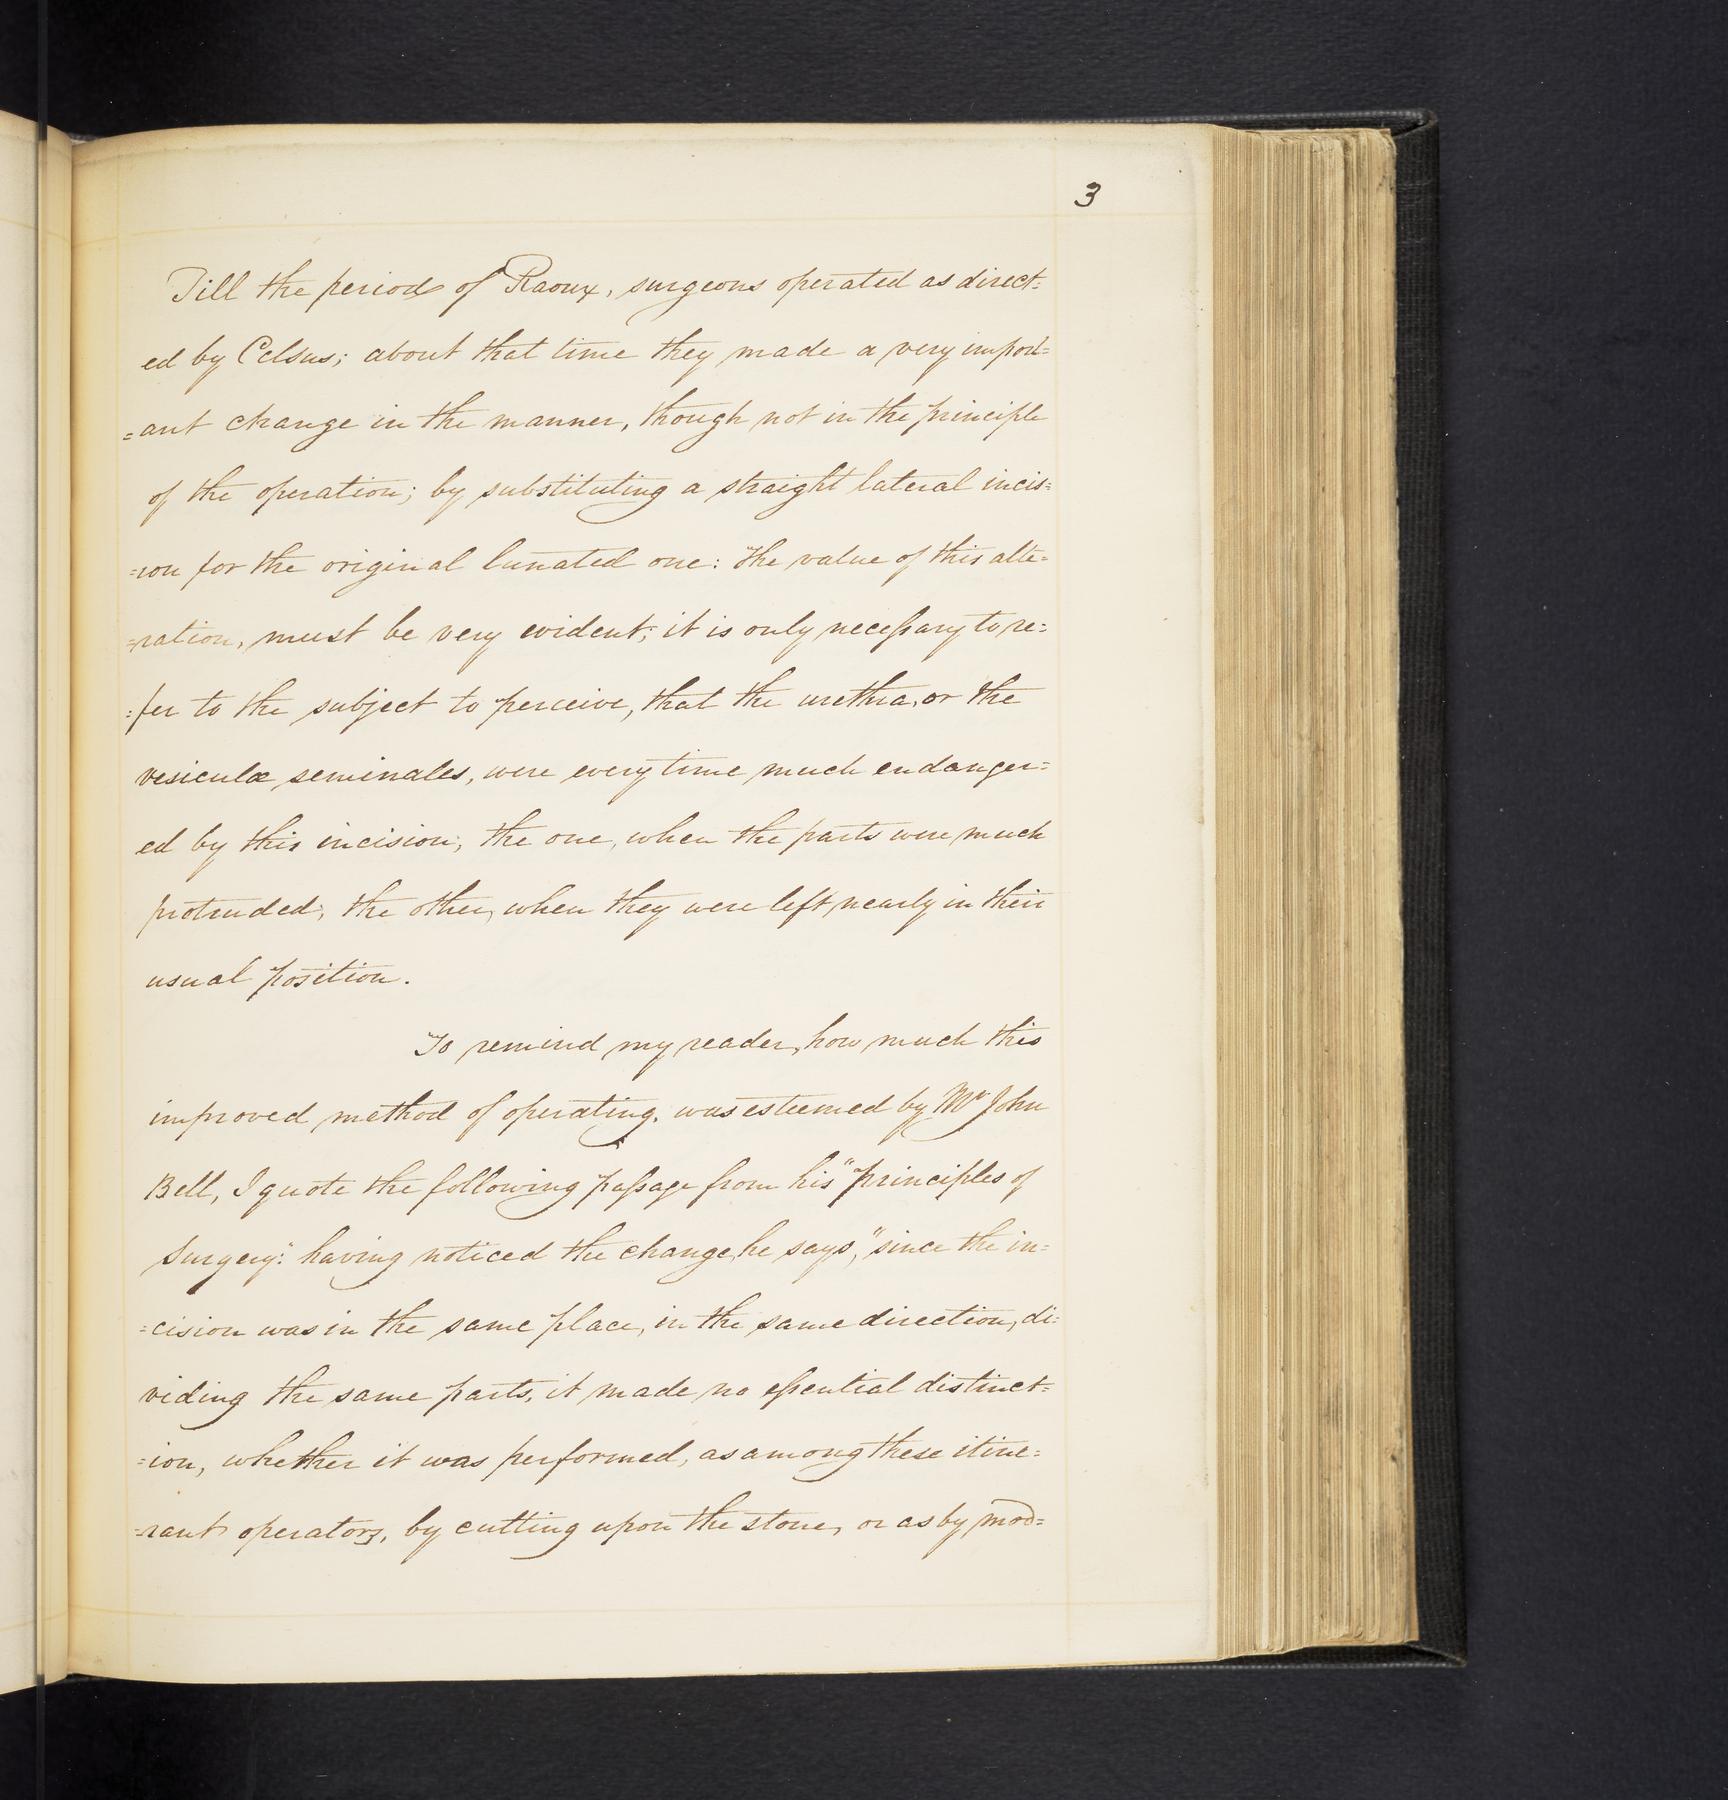 3
Till the period of Raoux, surgeons operated as direct=
ed by Celsus; about that time they made a very import=
=ant change in the manner, though not in the principle
of the operation; by substituting a straight lateral incis=
=ion for the original lunated one: The value of this alte=
=ration, must be very evident; it is only neceſsary to re=
=fer to the subject to perceive, that the urethra, or the
vesiculæ seminales, were every time much endanger=
ed by this incision; the one, when the parts were much
protruded; the other, when they were left nearly in their
usual position.
To remind my reader, how much this
improved method of operating, was esteemed by Mr John
Bell, I quote the following paſsage from his "principles of
Surgery": having noticed the change, he says, "since the in=
=cision was in the same place, in the same direction, di=
viding the same parts, it made no eſsential distinct=
=ion, whether it was performed, as among these itine=
=rant operators, by cutting upon the stone, or as by mod=